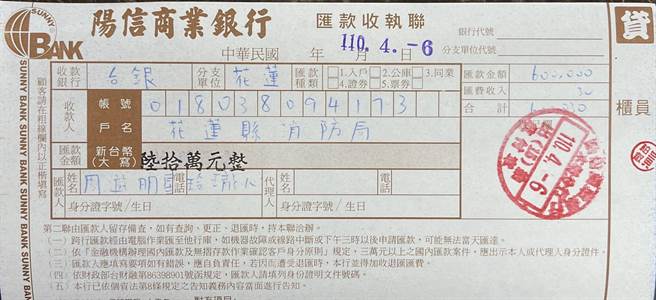 SUNNY BANK
陽信商業銀行
匯款收執聯
銀行代號
中華民國 年 月 日
110. 4. -6
分支單位代號
貸
收款銀行 台銀 分支單位 花蓮 匯款種類 □1.入戶 □2.公庫 □3.同業 □4.證券 □5.票券
匯款金額 600,000
收款人 帳號 018038094173
匯費收入 30
戶名 花蓮縣消防局
合計
櫃員
匯款金額 新台幣(大寫) 陸拾萬元整
匯款人 姓名 電話 代理人 姓名 電話
身分證字號/生日 身分證字號/生日
110. 4. -6
顧客請在粗線欄內以正楷填寫
SUNNY BANK SUNNY BANK SUNNY BANK SUNNY BANK
第二聯由匯款人留存備查,如有查詢、更正、退匯時,持本聯洽辦。
(一)跨行匯款經由電腦作業匯至他行庫,如機器故障或線路中斷或下午三時以後申請匯款,可能無法當天匯達。
(二)依「金融機構辦理國內匯款及無摺存款作業確認客戶身分原則」規定,三萬元以上之國內匯款案件,應出示本人或代理人身分證件。
(三)匯款人應填寫要項如有錯誤,應自負責任,若因而遭受退匯時,本行並得加收退匯匯費。
(四)依財政部台財融第86398901號函規定,匯款人請填列身份證明文件號碼。
(五)本行已依個資法第8條規定之告知義務內容當面進行告知。